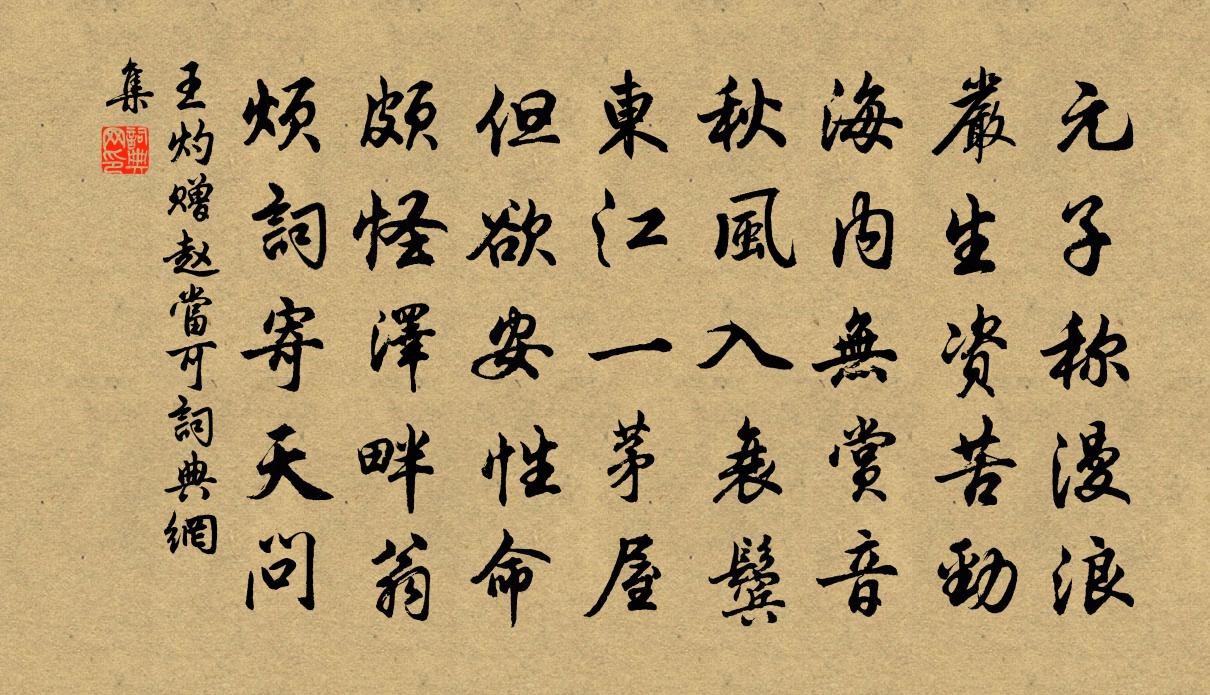 元子称漫浪
嚴生资苦勁
海内無賞音
秋風入衰鬢
東江一茅屋
但欲安性命
頗怪澤畔翁
煩詞寄天問
王灼赠赵當可詞典網
集
詞典網印